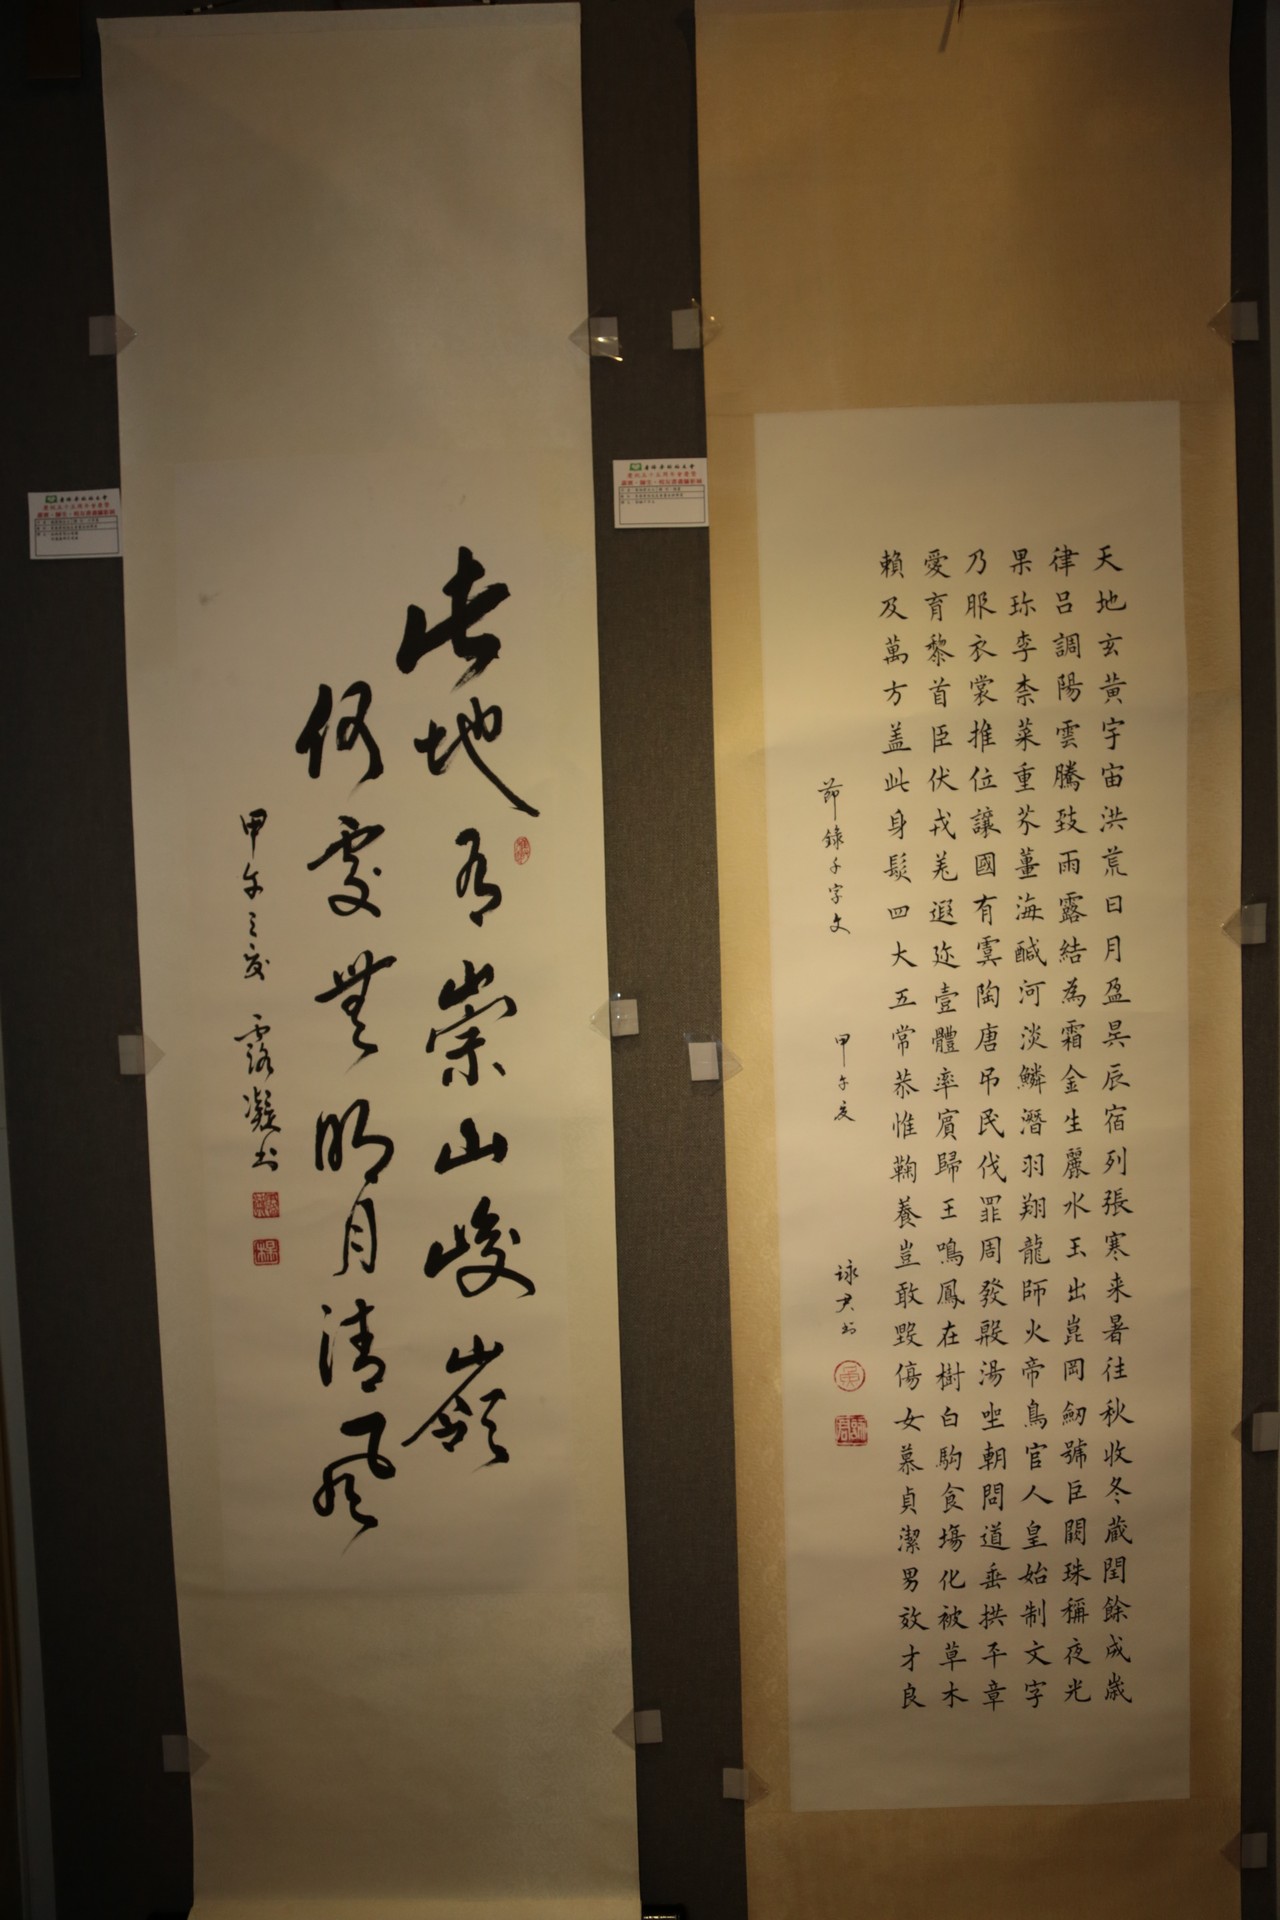 此地有崇山峻嶺
何處無明月清風
甲午之夏 露凝书
天地玄黃宇宙洪荒日月盈昃辰宿列張寒来暑往秋收冬蔵閏餘成歲
律呂調陽雲騰致雨露結為霜金生麗水玉出崑岡劒號巨闕珠稱夜光
果珎李柰菜重芥薑海鹹河淡鱗潛羽翔龍師火帝鳥官人皇始制文字
乃服衣裳推位讓國有虞陶唐吊民伐罪周發殷湯坐朝問道垂拱平章
愛育黎首臣伏戎羌遐迩壹體率賓歸王鳴鳳在樹白駒食場化被草木
賴及萬方盖此身髮四大五常恭惟鞠養豈敢毀傷女慕貞潔男效才良
節錄千字文 甲午夏 詠尹书